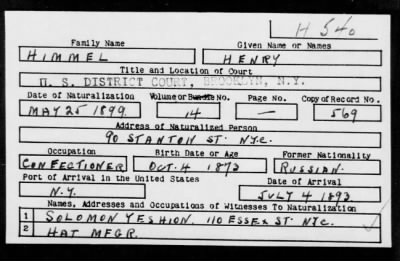 H 540
Family Name Given Name or Names
HIMMEL HENRY
Title and Location of Court
U. S. DISTRICT COURT, BROOKLYN, N.Y.
Date of Naturalization Volume or Bundle No. Page No. Copy of Record No.
MAY 25 1899 14 — 569
Address of Naturalized Person
90 STANTON ST. NYC.
Occupation Birth Date or Age Former Nationality
CONFECTIONER OCT. 4 1873 RUSSIAN.
Port of Arrival in the United States Date of Arrival
N.Y. JULY 4 1893
Names, Addresses and Occupations of Witnesses To Naturalization
1 SOLOMON YESHION. 110 ESSEX ST. NYC.
2 HAT MFGR.